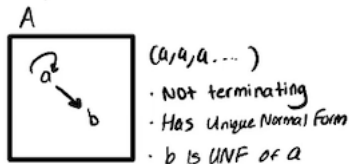 A
a
b
(a,a,a....)
• Not terminating
• Has Unique Normal Form
• b is UNF of a